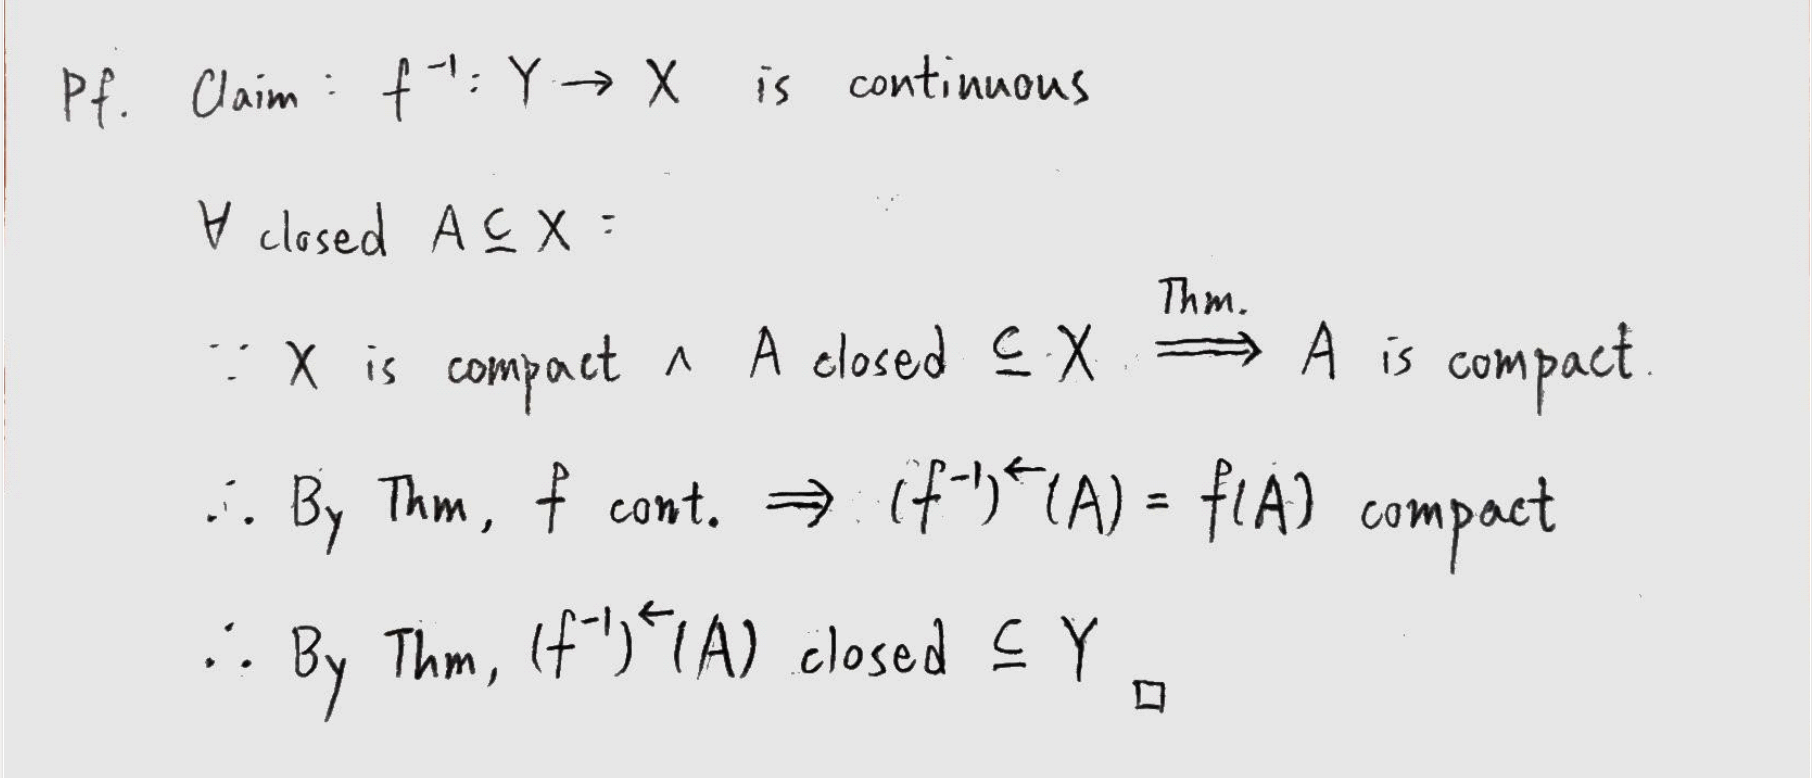 Pf. Claim : f⁻¹: Y → X is continuous
∀ closed A ⊆ X :
∵ X is compact ∧ A closed ⊆ X Thm. ⟹ A is compact.
∴ By Thm, f cont. ⟹ (f⁻¹)^←(A) = f(A) compact
∴ By Thm, (f⁻¹)^←(A) closed ⊆ Y □